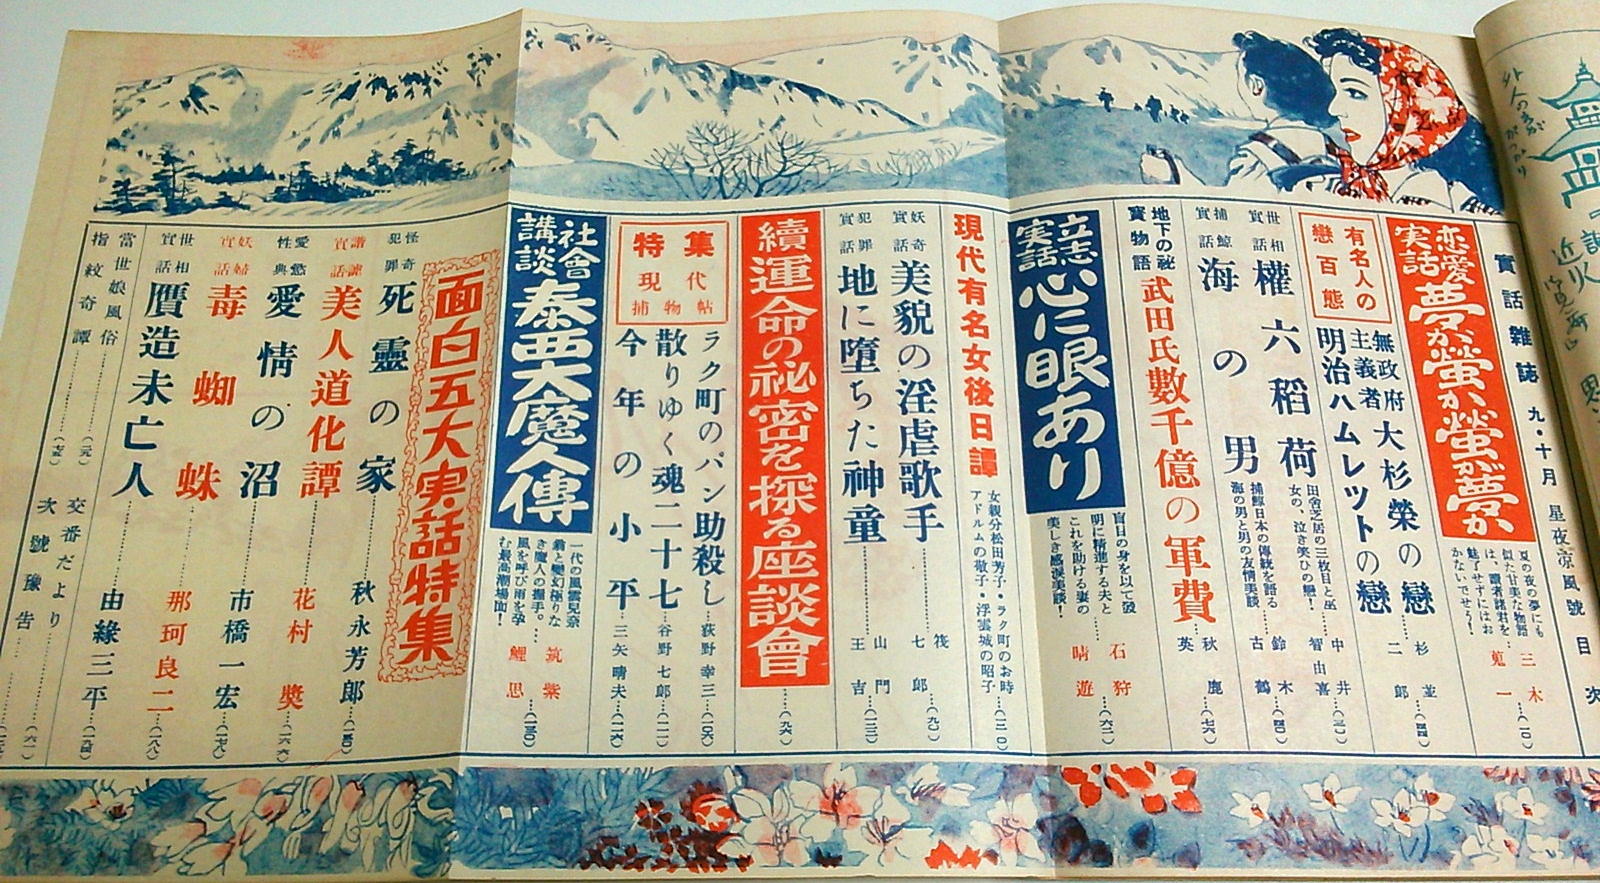 實話雑誌 九・十月 星夜凉風號 目次
恋愛実話
夢か螢か螢が夢か
夏の夜の夢にも
似た甘美な物語
は、讀者諸君を…
魅了せずにはお
かないでせう!
三木蒐一…(一〇)
有名人の戀百態
無政府主義者大杉榮の戀……杉並二郎…(四四)
明治ハムレットの戀
世相實話
權六稻荷
田舎芝居の三枚目と巫
女の、泣き笑ひの戀!
中井智由喜
捕鯨實話
海の男
捕鯨日本の傳統を語る
海の男と男の友情美談
鈴木古鶴
地下の祕寶物語
武田氏數千億の軍費
秋鹿英…(七六)
立志実話
心に眼あり
盲目の身を以て發
明に精進する夫と
これを助ける妻の……
美しき感涙美談!
石狩晴遊…(六二)
現代有名女後日譚
女親分松田芳子・ラク町のお時
アドルムの敬子・浮雲城の昭子
…(一三〇)
妖奇實話
美貌の淫虐歌手……筏七郎…(九〇)
犯罪實話
地に墮ちた神童……山門王吉…(一三三)
續運命の祕密を探る座談會……(九六)
特集
現代捕物帖
ラク町のパン助殺し……荻野幸三…(一〇六)
散りゆく魂二十七……谷野七郎…(一一一)
今年の小平……三矢晴夫…(一一六)
社會講談
泰西大魔人傳
一代の風雲兒奈
翁と變幻極りな
き魔人の握手。…
風を呼び雨を孕
む最高潮場面!
筑紫鯉思…(一三〇)
面白五大実話特集
怪奇犯罪
死靈の家……秋永芳郎
諧謔實話
美人道化譚……花村奬…(一六六)
愛慾性典
愛情の沼……市橋一宏
妖婦實話
毒蜘蛛……那珂良二…(一八八)
世相實話
贋造未亡人……由緣三平
當世娘風俗……
指紋奇譚……
交番だより……(六一)
次號豫告……